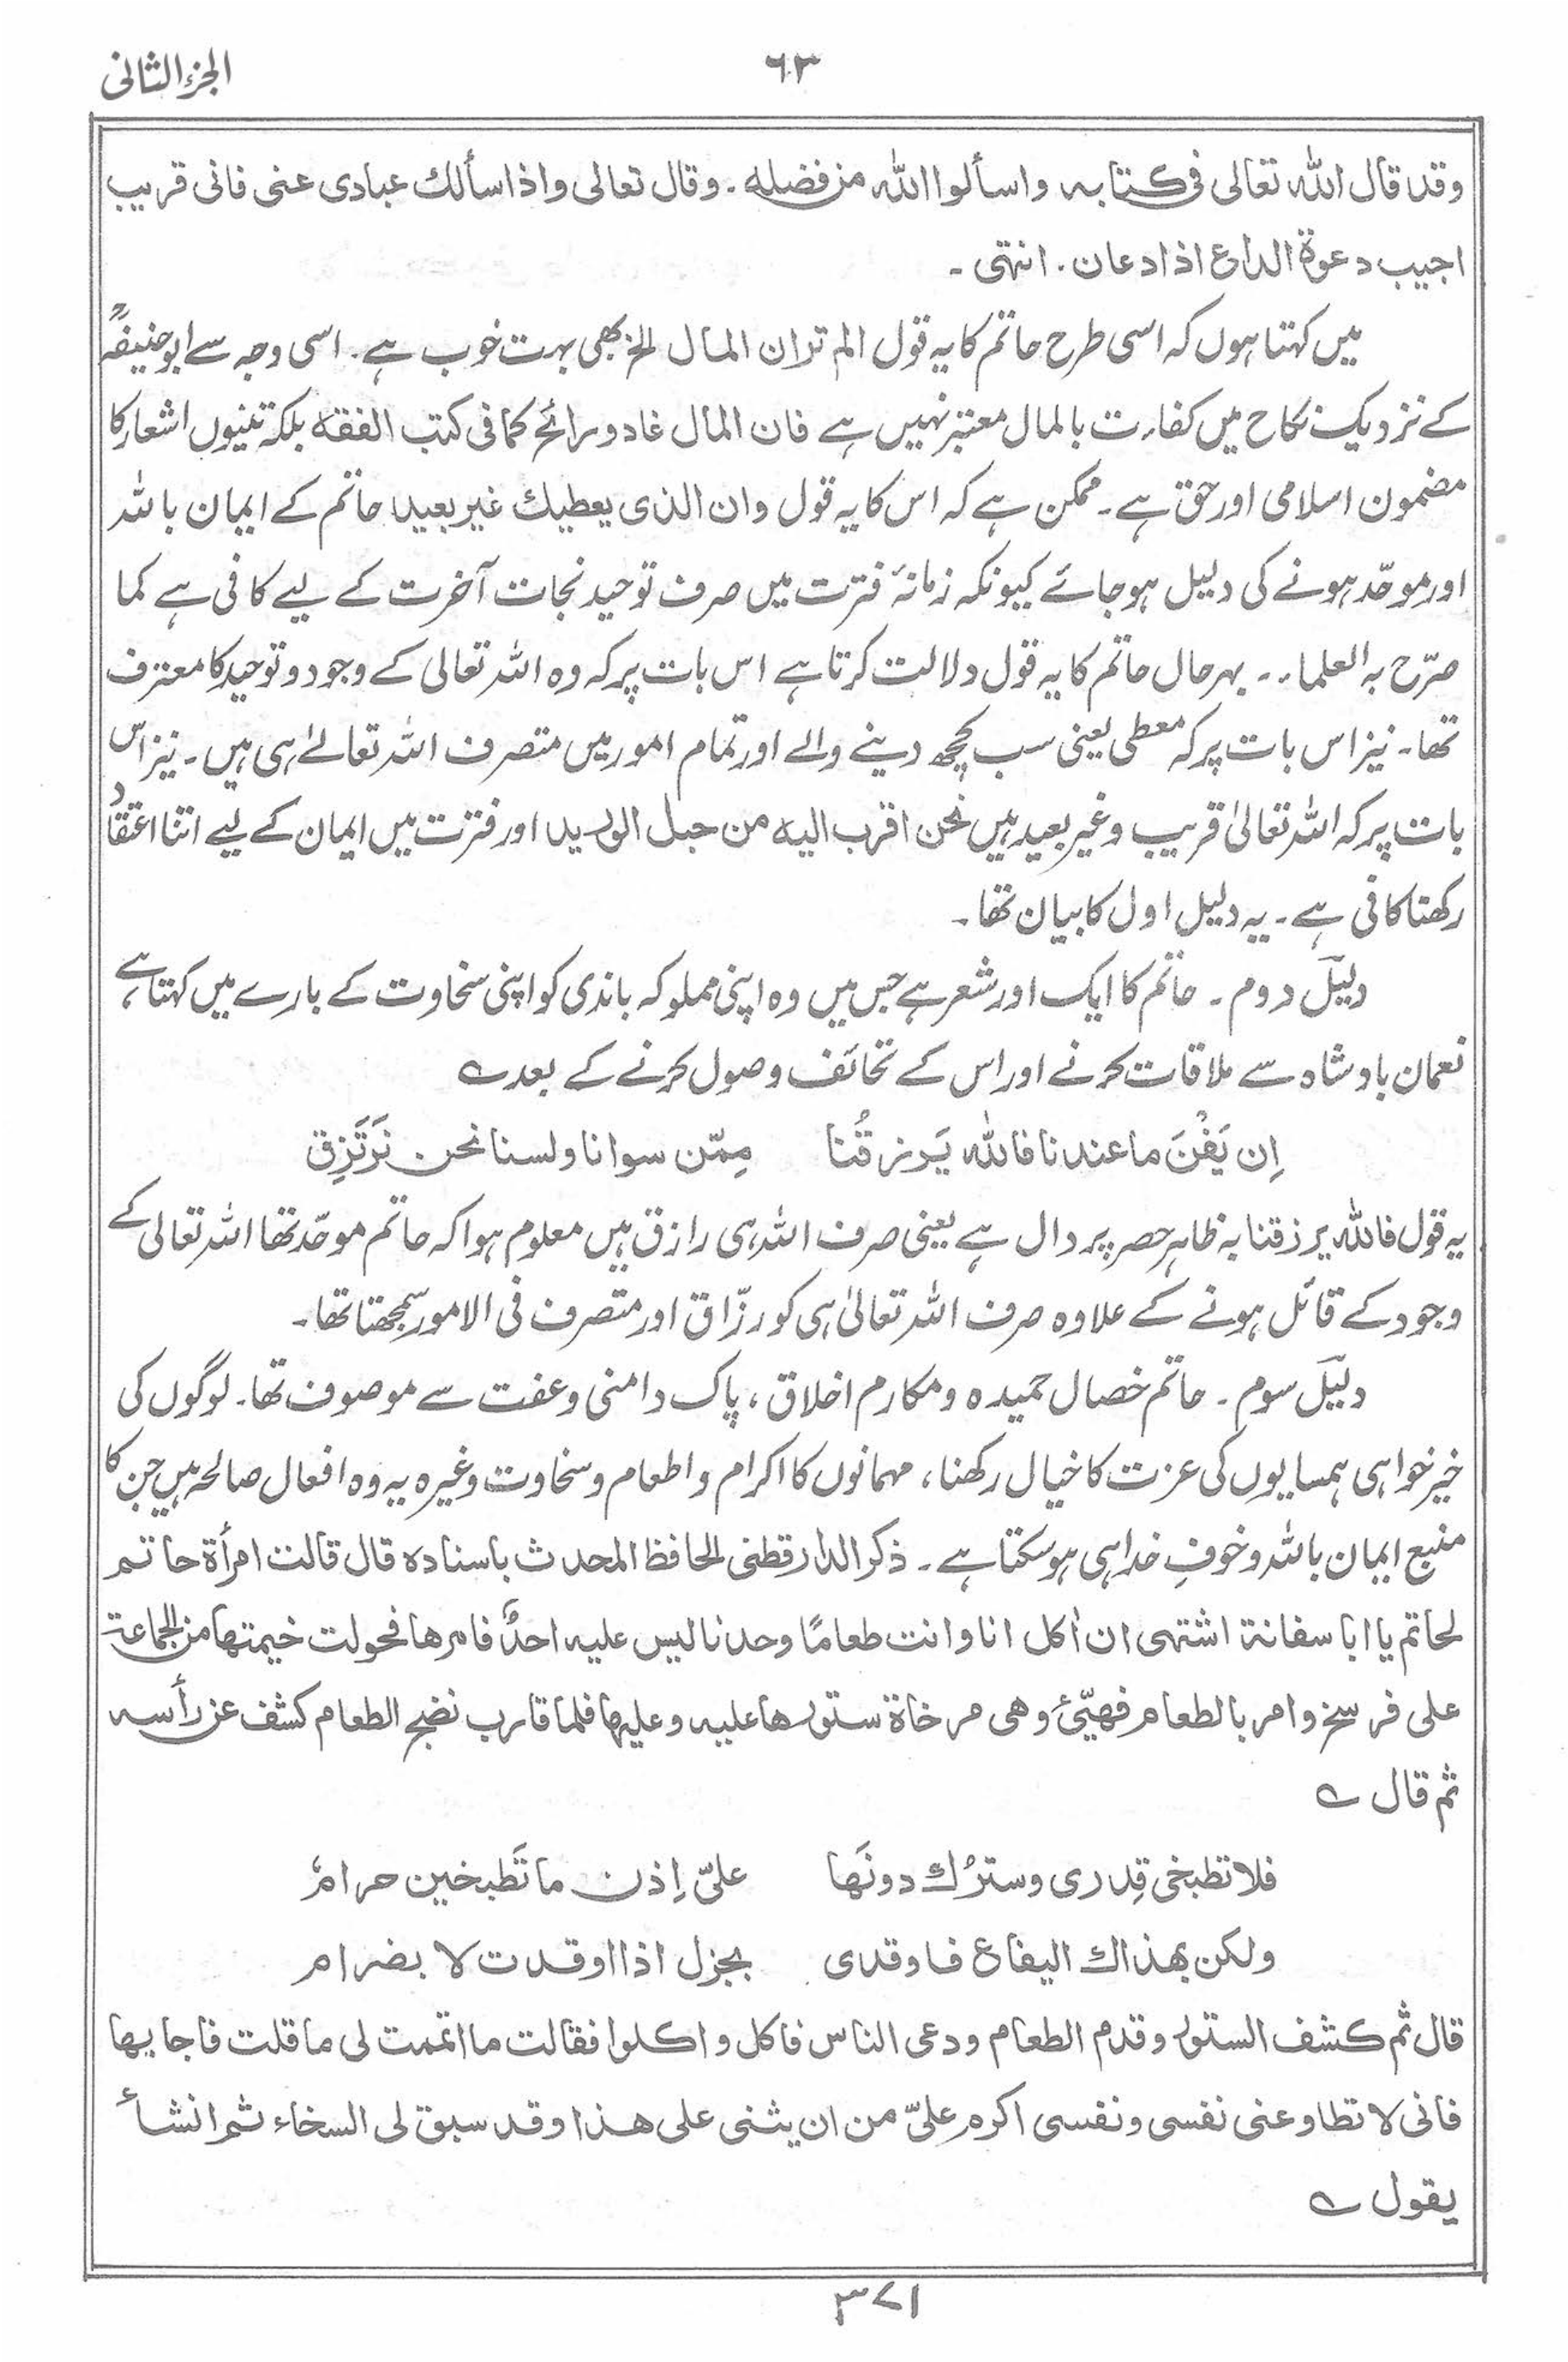 الجزء الثانی
٦٣
وقد قال اللّٰه تعالى فی كتابه واسألوا اللّٰه من فضله ۔ وقال تعالى واذا سألك عبادی عنی فانی قریب
اجیب دعوة الداع اذا دعان ۔ انتهی ۔
میں کہتا ہوں کہ اسی طرح حاتم کا یہ قول الم تر ان المال الخ بھی بہت خوب ہے ۔ اسی وجہ سے ابوحنیفہؒ
کے نزدیک نکاح میں کفارت بالمال معتبر نہیں ہے فان المال غاد ورائح کما فی کتب الفقه بلکہ تینوں اشعار کا
مضمون اسلامی اور حق ہے ۔ ممکن ہے کہ اس کا یہ قول وان الذی یعطیك غیر بعید حاتم کے ایمان باللہ
اور موحّد ہونے کی دلیل ہو جائے کیونکہ زمانۂ فترت میں صرف توحید نجات آخرت کے لیے کافی ہے کما
صرّح بہ العلماء ۔ بہرحال حاتم کا یہ قول دلالت کرتا ہے اس بات پر کہ وہ اللہ تعالی کے وجود و توحید کا معترف
تھا ۔ نیز اس بات پر کہ معطی یعنی سب کچھ دینے والے اور تمام امور میں متصرف اللہ تعالےٰ ہی ہیں ۔ نیز اس
بات پر کہ اللہ تعالیٰ قریب وغیر بعید ہیں نحن اقرب الیه من حبل الورید اور فترت میں ایمان کے لیے اتنا اعتقاد
رکھنا کافی ہے ۔ یہ دلیل اول کا بیان تھا ۔
دلیل دوم ۔ حاتم کا ایک اور شعر ہے جس میں وہ اپنی مملوکہ باندی کو اپنی سخاوت کے بارے میں کہتا ہے،
نعمان بادشاہ سے ملاقات کرنے اور اس کے تحائف وصول کرنے کے بعد ؎
اِن یَفْنَ ما عندنا فاللّٰه یَرزقُنا مِمّن سوانا ولسنا نحن نَرتَزِق
یہ قول فاللّٰه یرزقنا بہ ظاہر حصر پر دال ہے یعنی صرف اللہ ہی رازق ہیں معلوم ہوا کہ حاتم موحّد تھا اللہ تعالی کے
وجود کے قائل ہونے کے علاوہ صرف اللہ تعالیٰ ہی کو رزّاق اور متصرف فی الامور سمجھتا تھا ۔
دلیل سوم ۔ حاتم خصال حمیدہ و مکارم اخلاق ، پاک دامنی و عفت سے موصوف تھا ۔ لوگوں کی
خیر خواہی ہمسایوں کی عزت کا خیال رکھنا ، مہمانوں کا اکرام و اطعام و سخاوت وغیرہ یہ وہ افعال صالحہ ہیں جن کا
منبع ایمان باللہ و خوفِ خدا ہی ہو سکتا ہے ۔ ذکر الدارقطنی الحافظ المحدث باسناده قال قالت امرأة حاتم
لحاتم یا ابا سفانة اشتهی ان اٰكل انا وانت طعامًا وحدنا لیس علیه احدٌ فامرها فحولت خیمتها من الجماعة
علی فرسخ وامر بالطعام فهیّئ وهی مرخاة ستورها علیه وعلیها فلما قارب نضج الطعام كشف عن رأسه
ثم قال ؎
فلا تطبخی قِدری وسترُك دونَها علیّ اِذن ما تَطبخین حرامٌ
ولكن بهذاك الیفاع فاوقدی بجزل اذا اوقدت لا بضرام
قال ثم كشف الستور وقدم الطعام ودعی الناس فاكل واكلوا فقالت ما اتممت لی ما قلت فاجابها
فانی لا تطاوعنی نفسی ونفسی اكرم علیّ من ان یثنی علی هذا وقد سبق لی السخاء ثم انشأ
یقول ؎
٣٧١